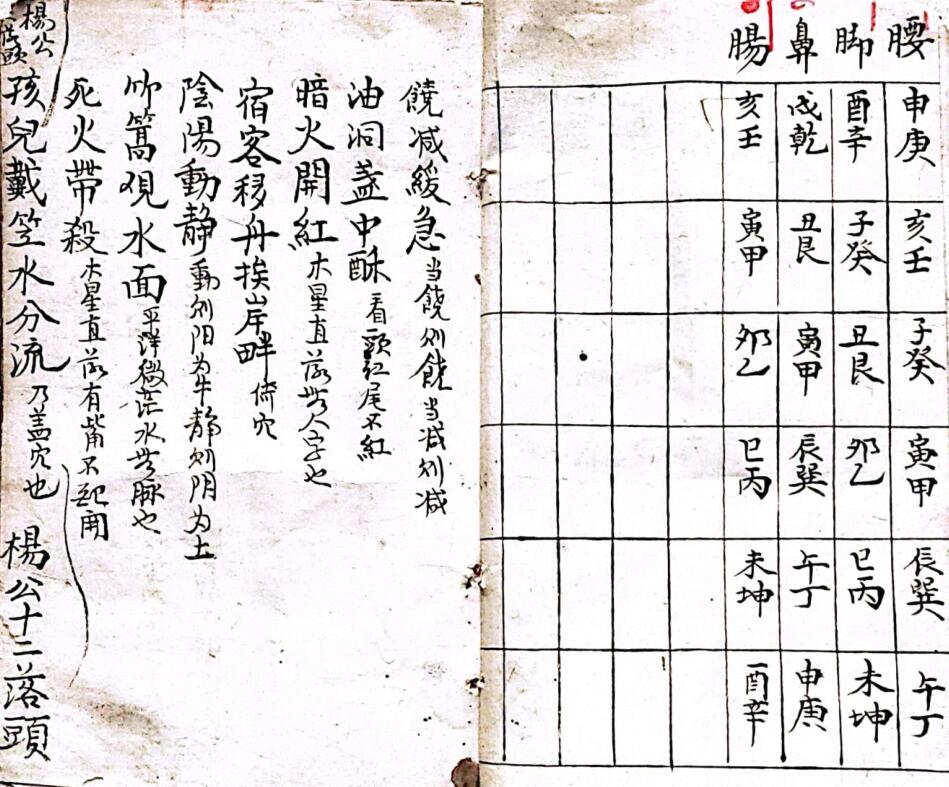 腰 申庚 亥壬 子癸 寅甲 辰巽 午丁
脚 酉辛 子癸 丑艮 卯乙 巳丙 未坤
鼻 戌乾 丑艮 寅甲 辰巽 午丁 申庚
腸 亥壬 寅甲 卯乙 巳丙 未坤 酉辛
饒减緩急 当饒则饒当减则减
油洞盏中酥 看頭紅尾不紅
暗火開紅 木星直落無人字也
宿客移舟挨岸畔 倚穴
陰陽動静 動则阳为牛静则阴为土
竹篙覌水面 平洋微茫水無脉也
死火帶殺 木星直落有嘴不起開
孩兒戴笠水分流 乃盖穴也 楊公十二落頭
楊公